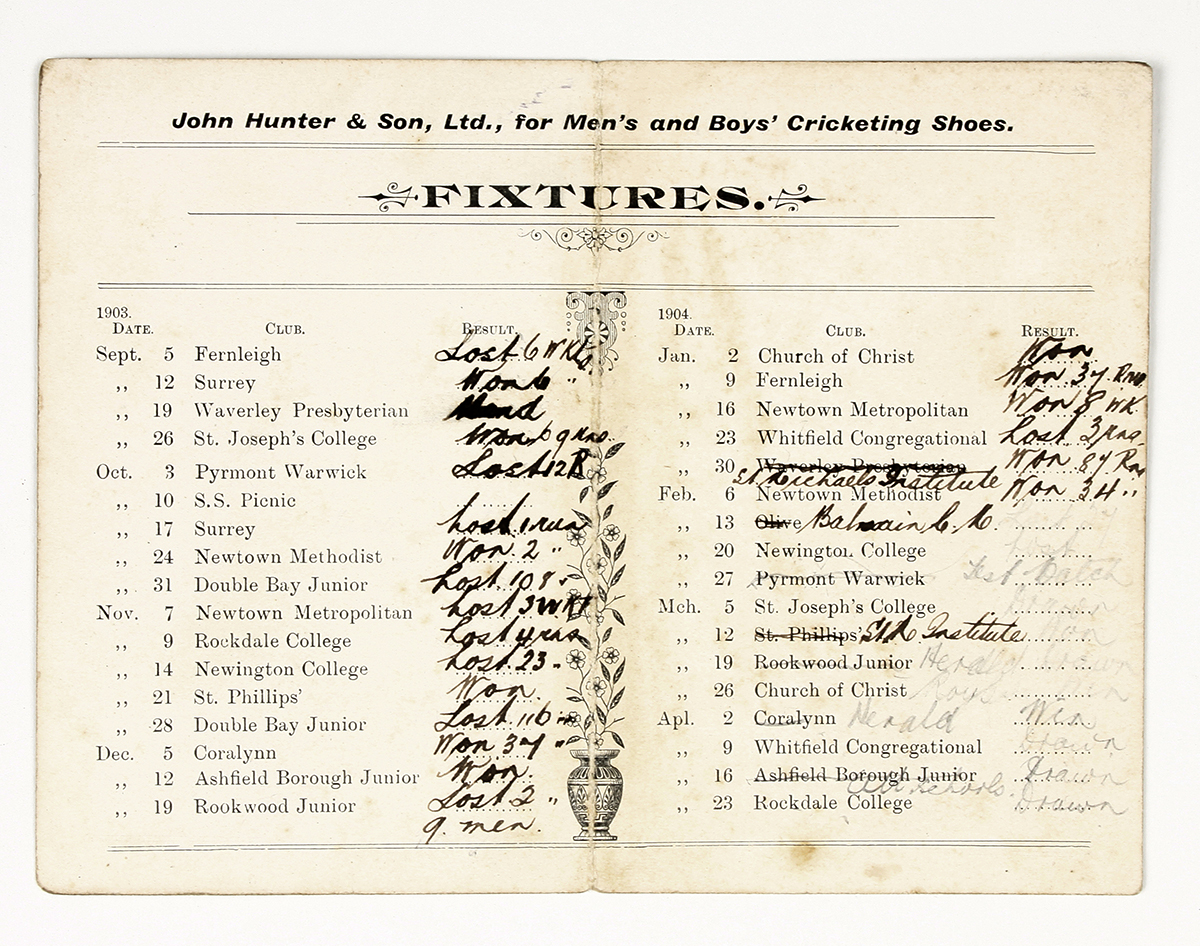 John Hunter & Son, Ltd., for Men's and Boys' Cricketing Shoes.
FIXTURES.
1903.
DATE. CLUB. RESULT.
Sept. 5 Fernleigh Lost 6 Wkts
,, 12 Surrey Won 6 "
,, 19 Waverley Presbyterian
,, 26 St. Joseph's College Won
Oct. 3 Pyrmont Warwick Lost 12 R
,, 10 S.S. Picnic
,, 17 Surrey Lost 1 run
,, 24 Newtown Methodist Won 2 "
,, 31 Double Bay Junior Lost 108 "
Nov. 7 Newtown Metropolitan Lost 3 Wkt
,, 9 Rockdale College Lost 4 rns
,, 14 Newington College Lost 23 "
,, 21 St. Phillips' Won.
,, 28 Double Bay Junior Lost 116 "
Dec. 5 Coralynn Won 37 "
,, 12 Ashfield Borough Junior Won.
,, 19 Rookwood Junior Lost 2 "
9. men.
1904.
DATE. CLUB. RESULT.
Jan. 2 Church of Christ Won
,, 9 Fernleigh Won 37 Rns
,, 16 Newtown Metropolitan Won 8 WK
,, 23 Whitfield Congregational Lost 3 rns
,, 30 Waverley Presbyterian Won 87 Rns
St Michaels Institute
Feb. 6 Newtown Methodist Won 34 "
,, 13 Olive Balmain C. C.
,, 20 Newington College Lost
,, 27 Pyrmont Warwick Test Match
Mch. 5 St. Joseph's College
,, 12 St. Phillips' Institute Won
,, 19 Rookwood Junior Herald Drawn
,, 26 Church of Christ Won
Apl. 2 Coralynn Herald Win
,, 9 Whitfield Congregational Drawn
,, 16 Ashfield Borough Junior Drawn
Schools.
,, 23 Rockdale College Drawn